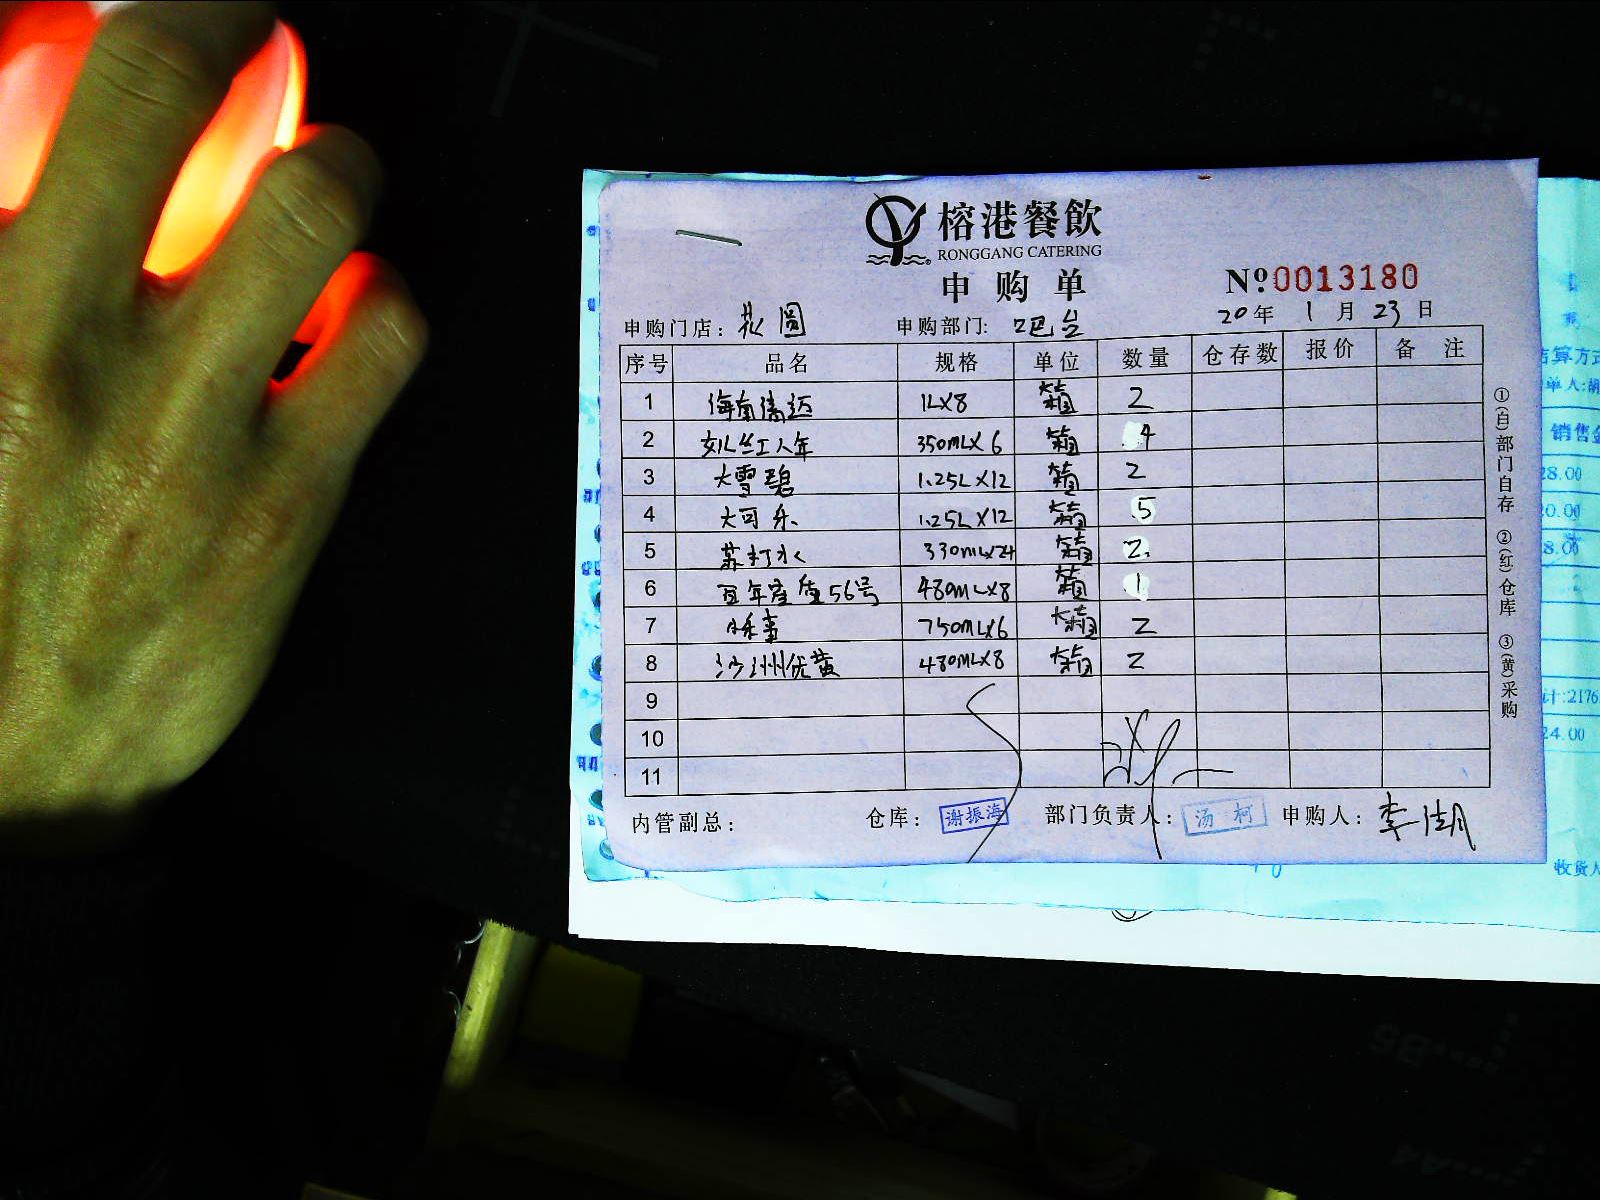 榕港餐飲
RONGGANG CATERING
申购单
Nº 0013180
申购门店: 花园 申购部门: 吧台 20年 1月 23日
序号 品名 规格 单位 数量 仓存数 报价 备注
1 海南 1L×8 箱 2
2 女儿红八年 350ML×6 箱 4
3 大雪碧 1.25L×12 箱 2
4 大可乐 1.25L×12 箱 5
5 苏打水 330ML×24 箱 2
6 五年 56号 480ML×8 箱 1
7 750ML×6 箱 2
8 沙洲优黄 480ML×8 箱 2
9
10
11
内管副总: 仓库: 谢振海 部门负责人: 汤柯 申购人: 李
①(白)部门自存 ②(红)仓库 ③(黄)采购
结算方式
单人:胡
销售金
28.00
0.00
8.00
计:2176
24.00
收货人